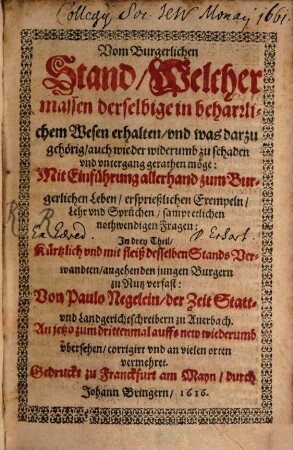 Collegy Soc: JESV Monaÿ 1661.
Vom Burgerlichen
Stand/Welcher
massen derselbige in beharrli-
chem Wesen erhalten/vnd was darzu
gehörig/auch wieder widerumb zu schaden
vnd vntergang gerathen möge:
Mit Einführung allerhand zum Bur-
gerlichen Leben/ ersprießlichen Exempeln/
Lehr vnd Sprüchen/ sampt etlichen
nothwendigen Fragen:
In drey Theil/
Kürtzlich vnd mit fleiß desselben Stands Ver-
wandten/angehenden jungen Burgern
zu Nutz verfast:
Von Paulo Negelein/der Zeit Statt-
vnd Landgerichtschreibern zu Auerbach.
An jetzo zum drittenmal auffs new wiederumb
vbersehen/corrigirt vnd an vielen orten
vermehret.
Gedruckt zu Franckfurt am Mayn/durch
Johann Bringern/ 1616.